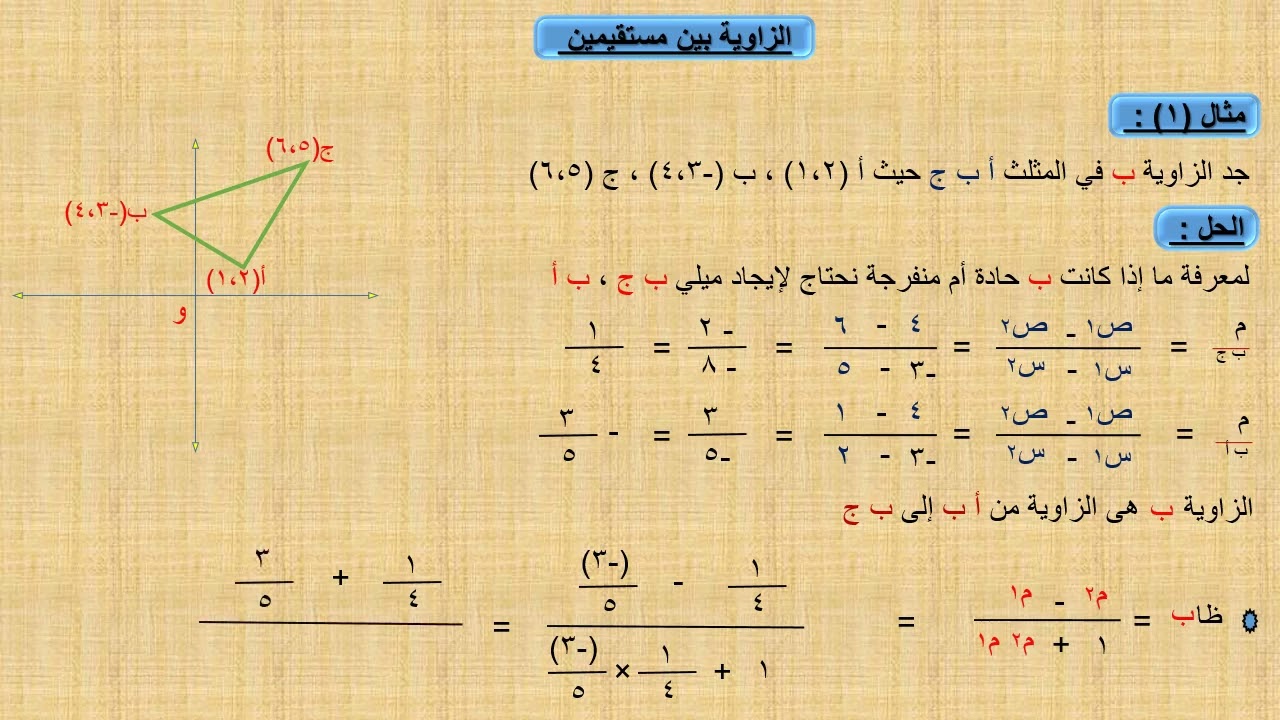 الزاوية بين مستقيمين
مثال (١) :
جد الزاوية ب في المثلث أ ب ج حيث أ (١،٢) ، ب (-٤،٣) ، ج (٦،٥)
الحل :
لمعرفة ما إذا كانت ب حادة أم منفرجة نحتاج لإيجاد ميلي ب ج ، ب أ
ج(٦،٥)
ب(-٤،٣)
أ(١،٢)
و
ص١ - ص٢ ٤ - ٦ - ٢ ١
م = = = =
ب ج س١ - س٢ -٣ - ٥ - ٨ ٤
ص١ - ص٢ ٤ - ١ ٣ ٣
م = = = = -
ب أ س١ - س٢ -٣ - ٢ -٥ ٥
الزاوية ب هى الزاوية من أ ب إلى ب ج
م٢ - م١ ١ - (-٣) ١ + ٣
٤ ٥ ٤ ٥
ظاب = = =
١ + م٢ م١ ١ + ١ × (-٣)
٤ ٥